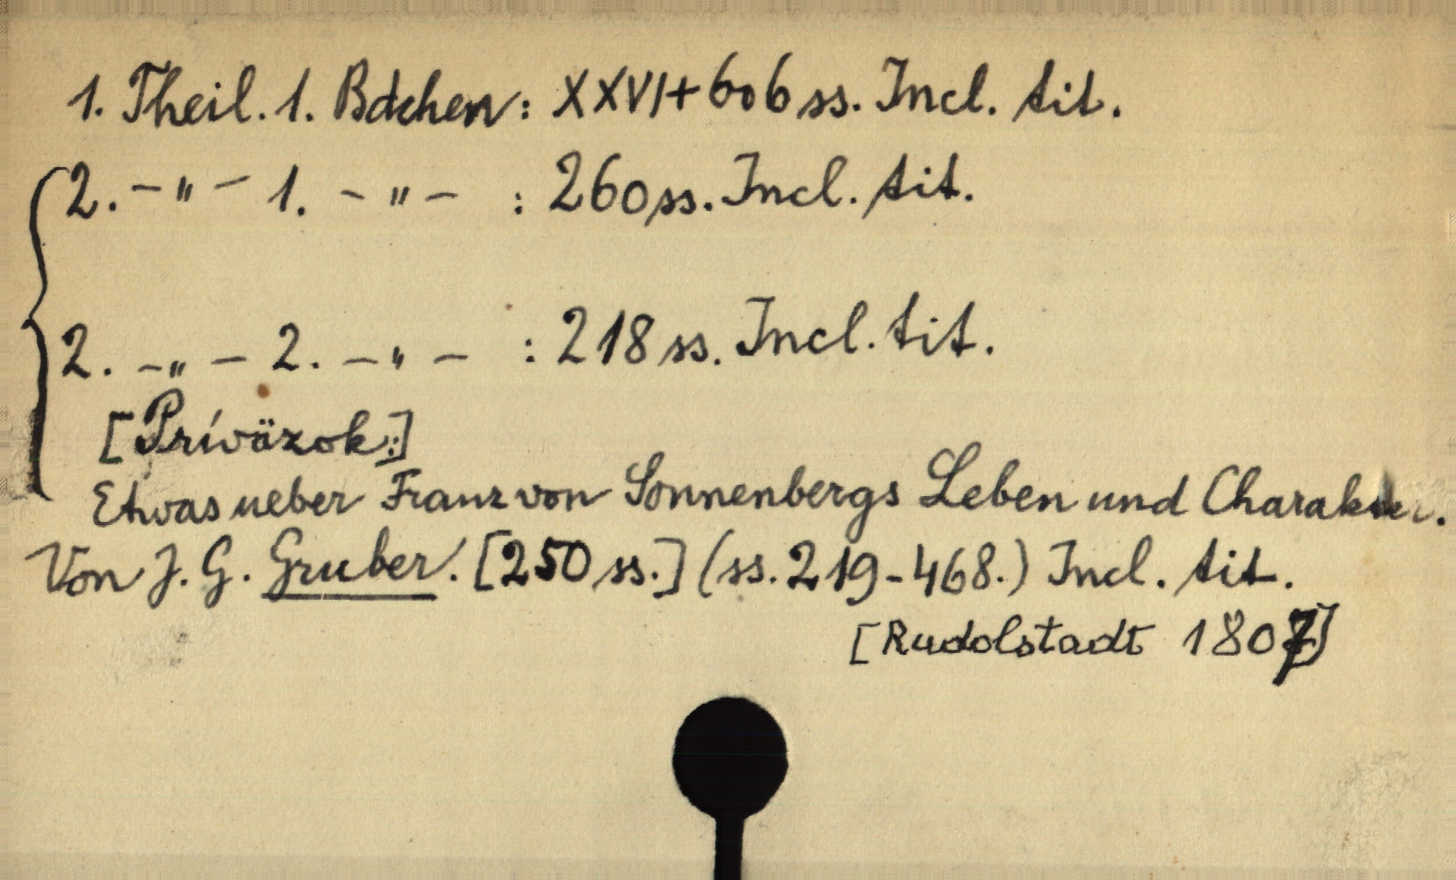 1. Theil. 1. Bdchen: XXVI+606 ss. Incl. tit.
2. -"- 1. -"- : 260 ss. Incl. tit.
2. -"- 2. -"- : 218 ss. Incl. tit.
[Príväzok:]
Etwas ueber Franz von Sonnenbergs Leben und Charakter.
Von J. G. Gruber. [250 ss.] (ss. 219-468.) Incl. tit.
[Rudolstadt 1807]